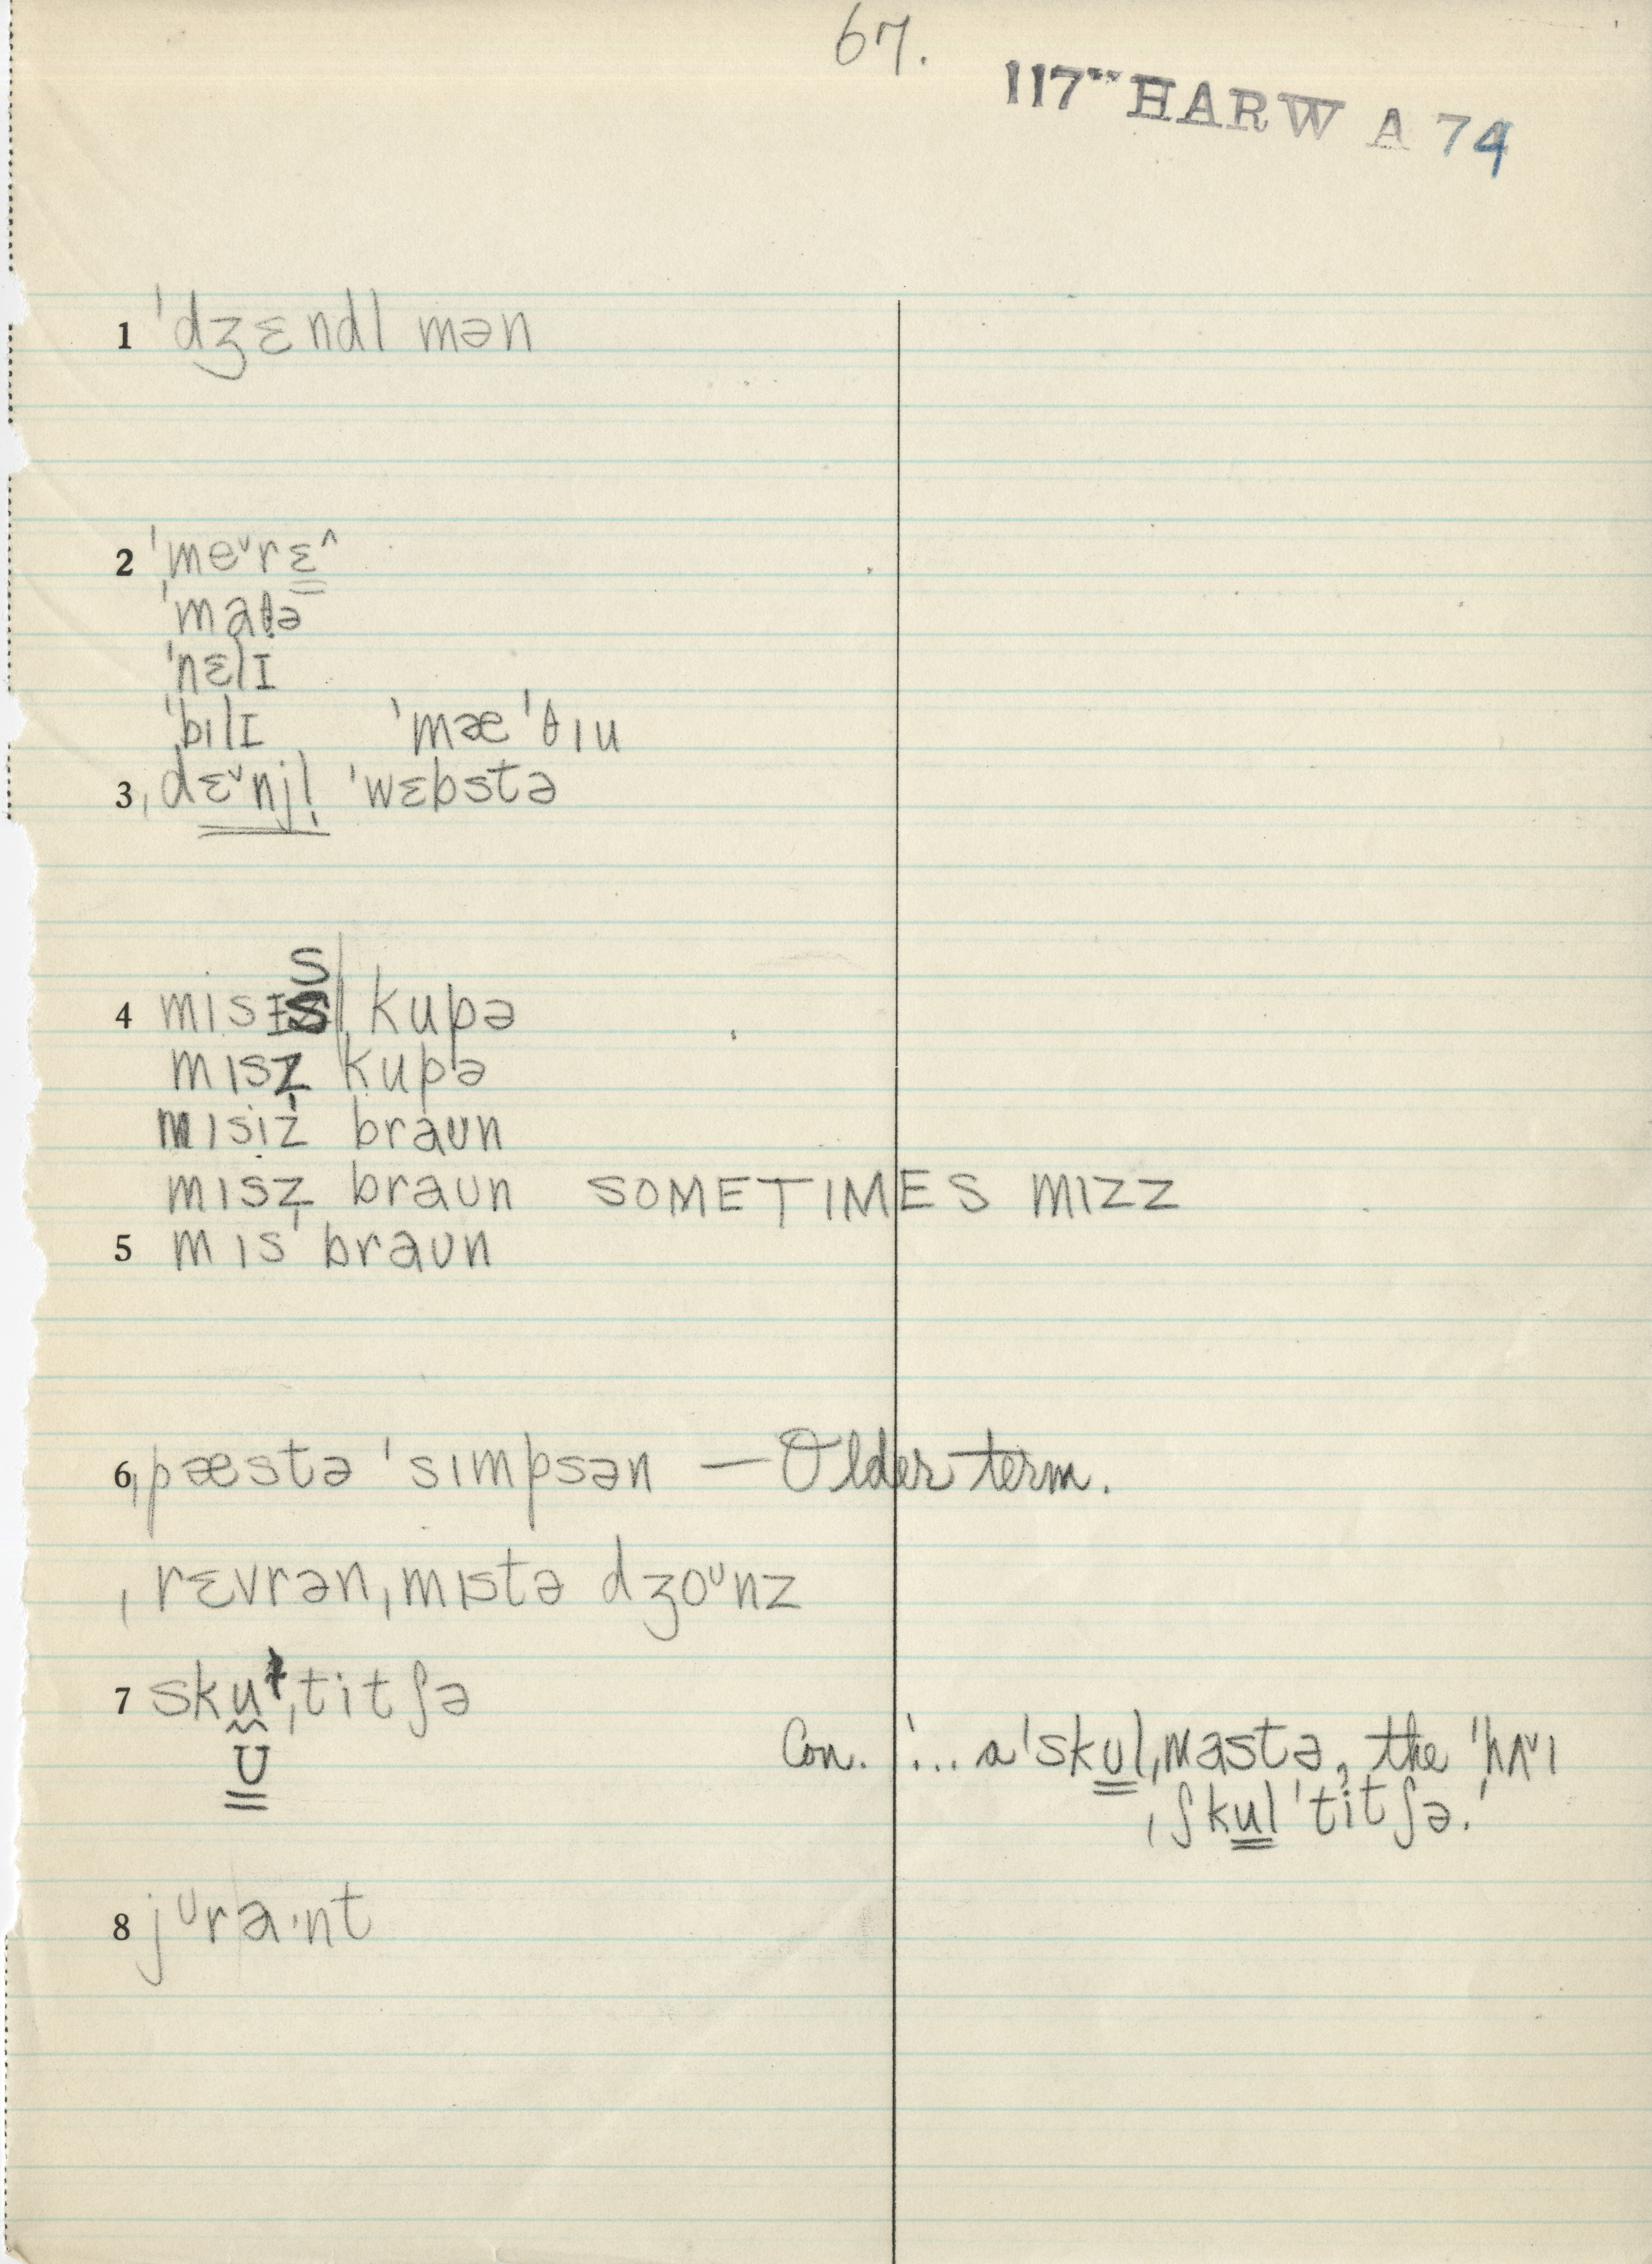 67.
117" HARW A 74
1 ˈdʒɛndl mən
2 ˈmeᵛrɛ^
ˈmaθə
ˈnɛlɪ
ˈbılɪ ˈmæˈθıu
3 ˌdɛᵛnjl̩ ˈwɛbstə
4 mısɪs kupə
mısz̩ kupə
mısiz braun
mısz̩ braun SOMETIMES MIZZ
5 mıs braun
6 ˌpæstə ˈsımpsən — Older term.
ˌrɛvrənˌmıstə dʒoᶸnz
7 skuˌtitʃə
U
Con. '... a ˈskulˌmastə, the ˈhʌᵛı
ˌʃkul ˈtitʃə.'
8 jᶸra·nt